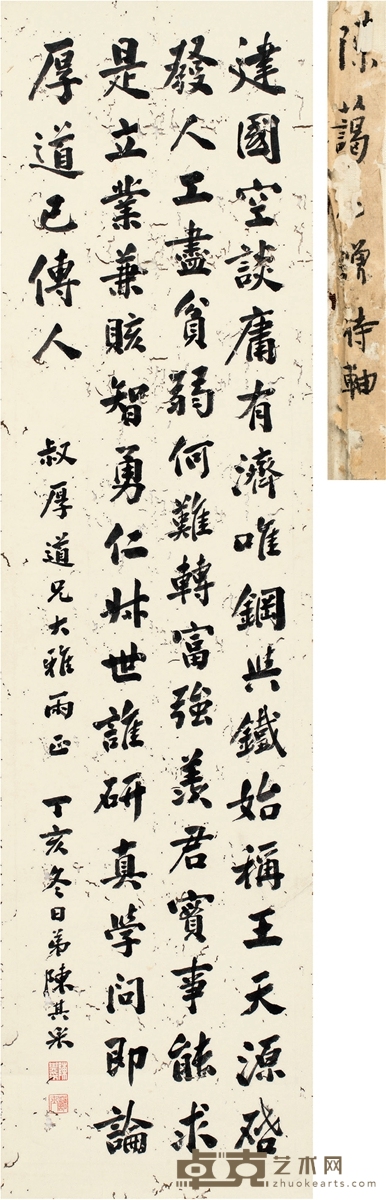 建國空談庸有濟唯鋼與鐵始稱王天源啓
發人工盡貧弱何難轉富強羨君實事能求
是立業兼賅智勇仁叔世誰研真學問即論
厚道已傳人
叔厚道兄大雅兩正 丁亥冬日弟陳其采
陳藹士贈詩軸
卓克艺术网
zhuokearts.com